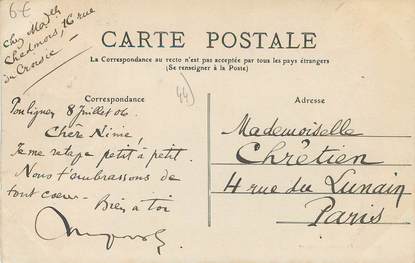 6€
chez Mlle
Chedmois, 16 rue
du Croisic
CARTE POSTALE
La Correspondance au recto n'est pas acceptée par tous les pays étrangers
(Se renseigner à la Poste)
Correspondance
Pouliguen 8 Juillet 06.
Chère Ninie!
Je me retape petit à petit.
Nous t'embrassons de
tout cœur. Bien à toi
44
Adresse
Mademoiselle
Chrétien
4 rue du Lunain
Paris